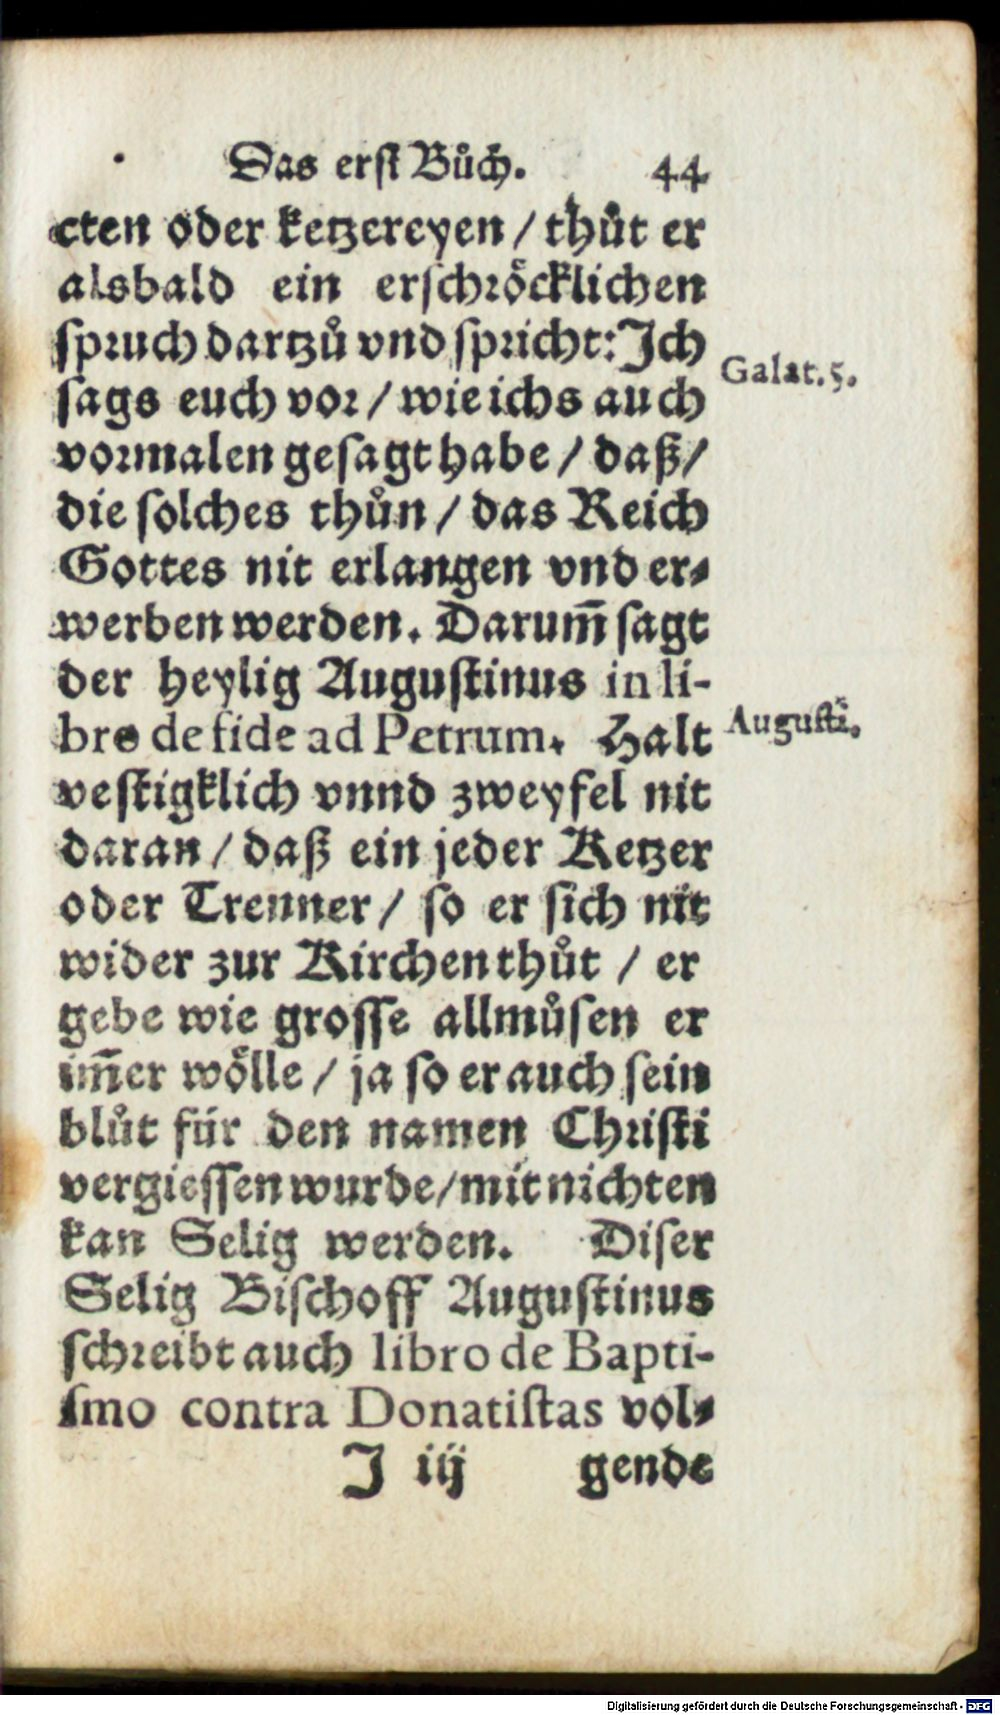 Das erst Bůch. 44
cten oder ketzereyen / thůt er
alsbald ein erschröcklichen
spruch dartzů vnd spricht: Ich
Galat. 5.
sags euch vor / wie ichs auch
vormalen gesagt habe / daß /
die solches thůn / das Reich
Gottes nit erlangen vnd er⸗
werben werden. Darum̃ sagt
der heylig Augustinus in li-
bro de fide ad Petrum. Halt
Augustĩ.
vestigklich vnnd zweyfel nit
daran / daß ein jeder Ketzer
oder Trenner / so er sich nit
wider zur Kirchen thůt / er
gebe wie grosse allmůsen er
im̃er wölle / ja so er auch sein
blůt für den namen Christi
vergiessen wurde / mit nichten
kan Selig werden. Diser
Selig Bischoff Augustinus
schreibt auch libro de Bapti-
smo contra Donatistas vol⸗
J iij gende
Digitalisierung gefördert durch die Deutsche Forschungsgemeinschaft - DFG